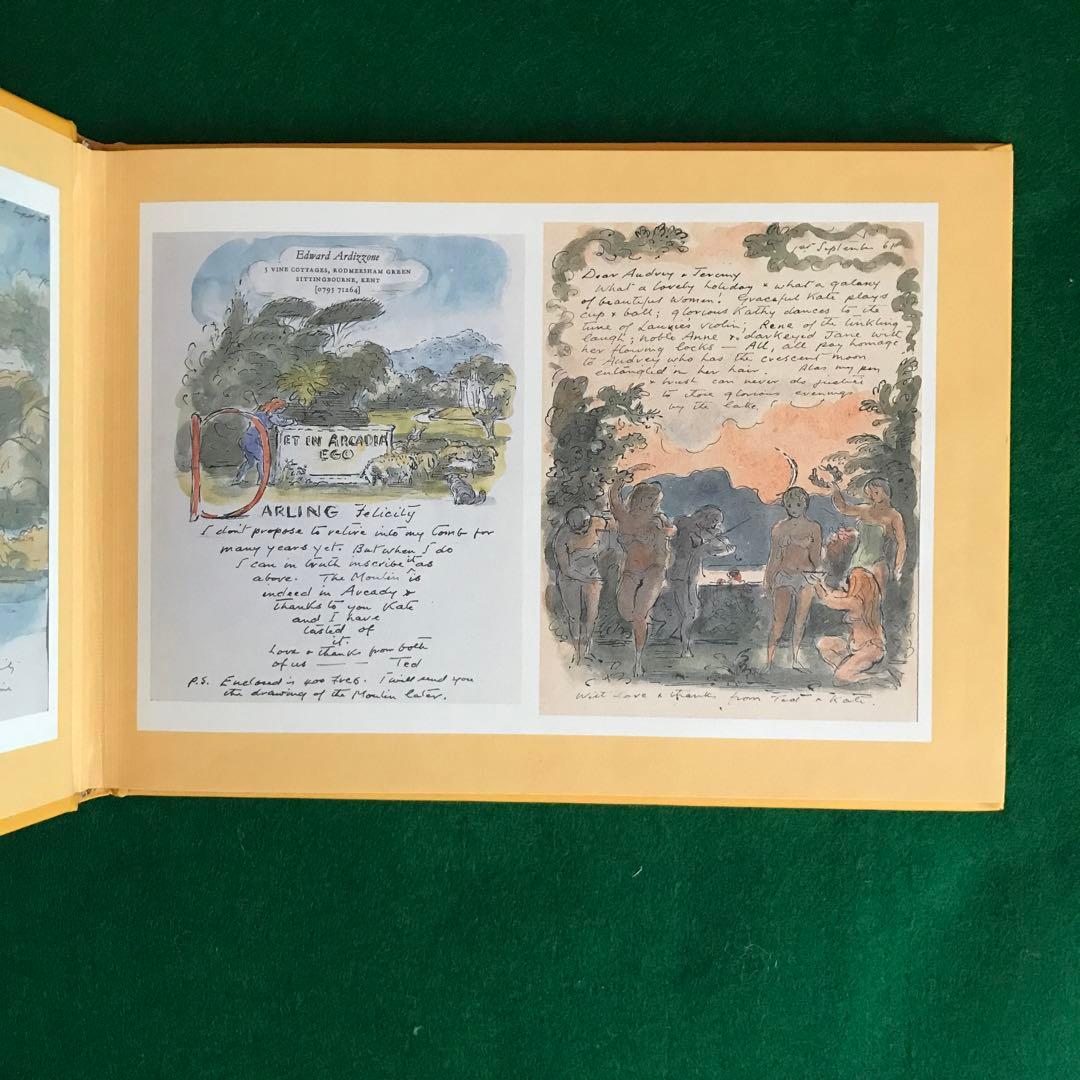 Edward Ardizzone
5 VINE COTTAGES, RODMERSHAM GREEN
SITTINGBOURNE, KENT
[0795 71264]
ET IN ARCADIA
EGO
DARLING Felicity
I don't propose to retire into my tomb for
many years yet. But when I do
I can in truth inscribe it as
above. The Moulin is
indeed in Arcady &
thanks to you Kate
and I have
tasted of
it.
Love & thanks from both
of us —— Ted
P.S. Enclosed is 400 frcs. I will send you
the drawing of the Moulin later.
1st September 61
Dear Audrey & Jeremy
What a lovely holiday & what a galaxy
of beautiful women! Graceful Kate plays
cup & ball; glorious Kathy dances to the
tune of Laurie's violin; Rene of the tinkling
laugh; noble Anne & darkeyed Jane with
her flowing locks — All, all pay homage
to Audrey who has the crescent moon
entangled in her hair. Alas my pen
& brush can never do justice
to those glorious evenings
by the lake.
With love & thanks from Ted & Kate.